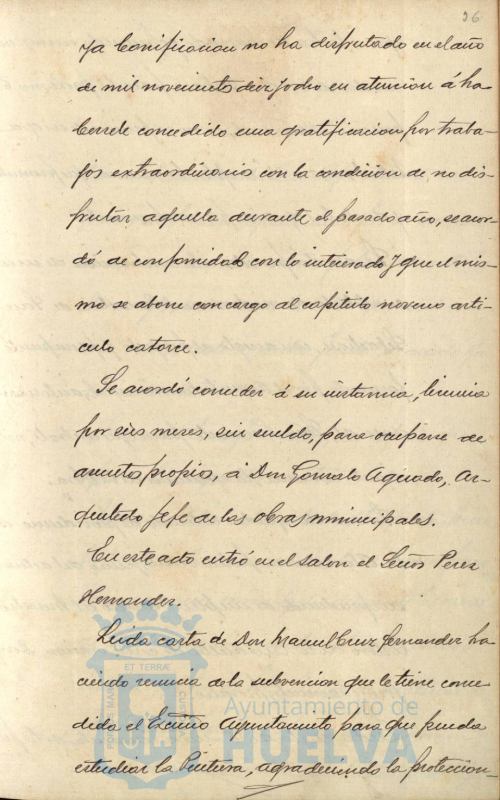 26
ya bonificacion no ha disfrutado en el año
de mil novecientos diez y ocho en atencion á ha-
berсele concedido una gratificacion por traba-
jos extraordinarios con la condicion de no dis-
frutar aquella durante el pasado año, se acor-
dó de conformidad con lo interesado y que el mis-
mo se abone con cargo al capitulo noveno arti-
culo catorce.
Se acordó conceder á su instancia, licencia
por seis meses, sin sueldo, para ocuparse de
asuntos propios, á Don Gonzalo Aguado, Ar-
quitecto Jefe de las obras municipales.
En este acto entró en el salon el Señor Perez
Hernandez.
Leida carta de Don Manuel Cruz Fernandez ha-
ciendo renuncia de la subvencion que le tiene conce-
dida el Excmo Ayuntamiento para que pueda
estudiar la Pintura, agradeciendo la proteccion
ET TERRAE
Ayuntamiento de
HUELVA